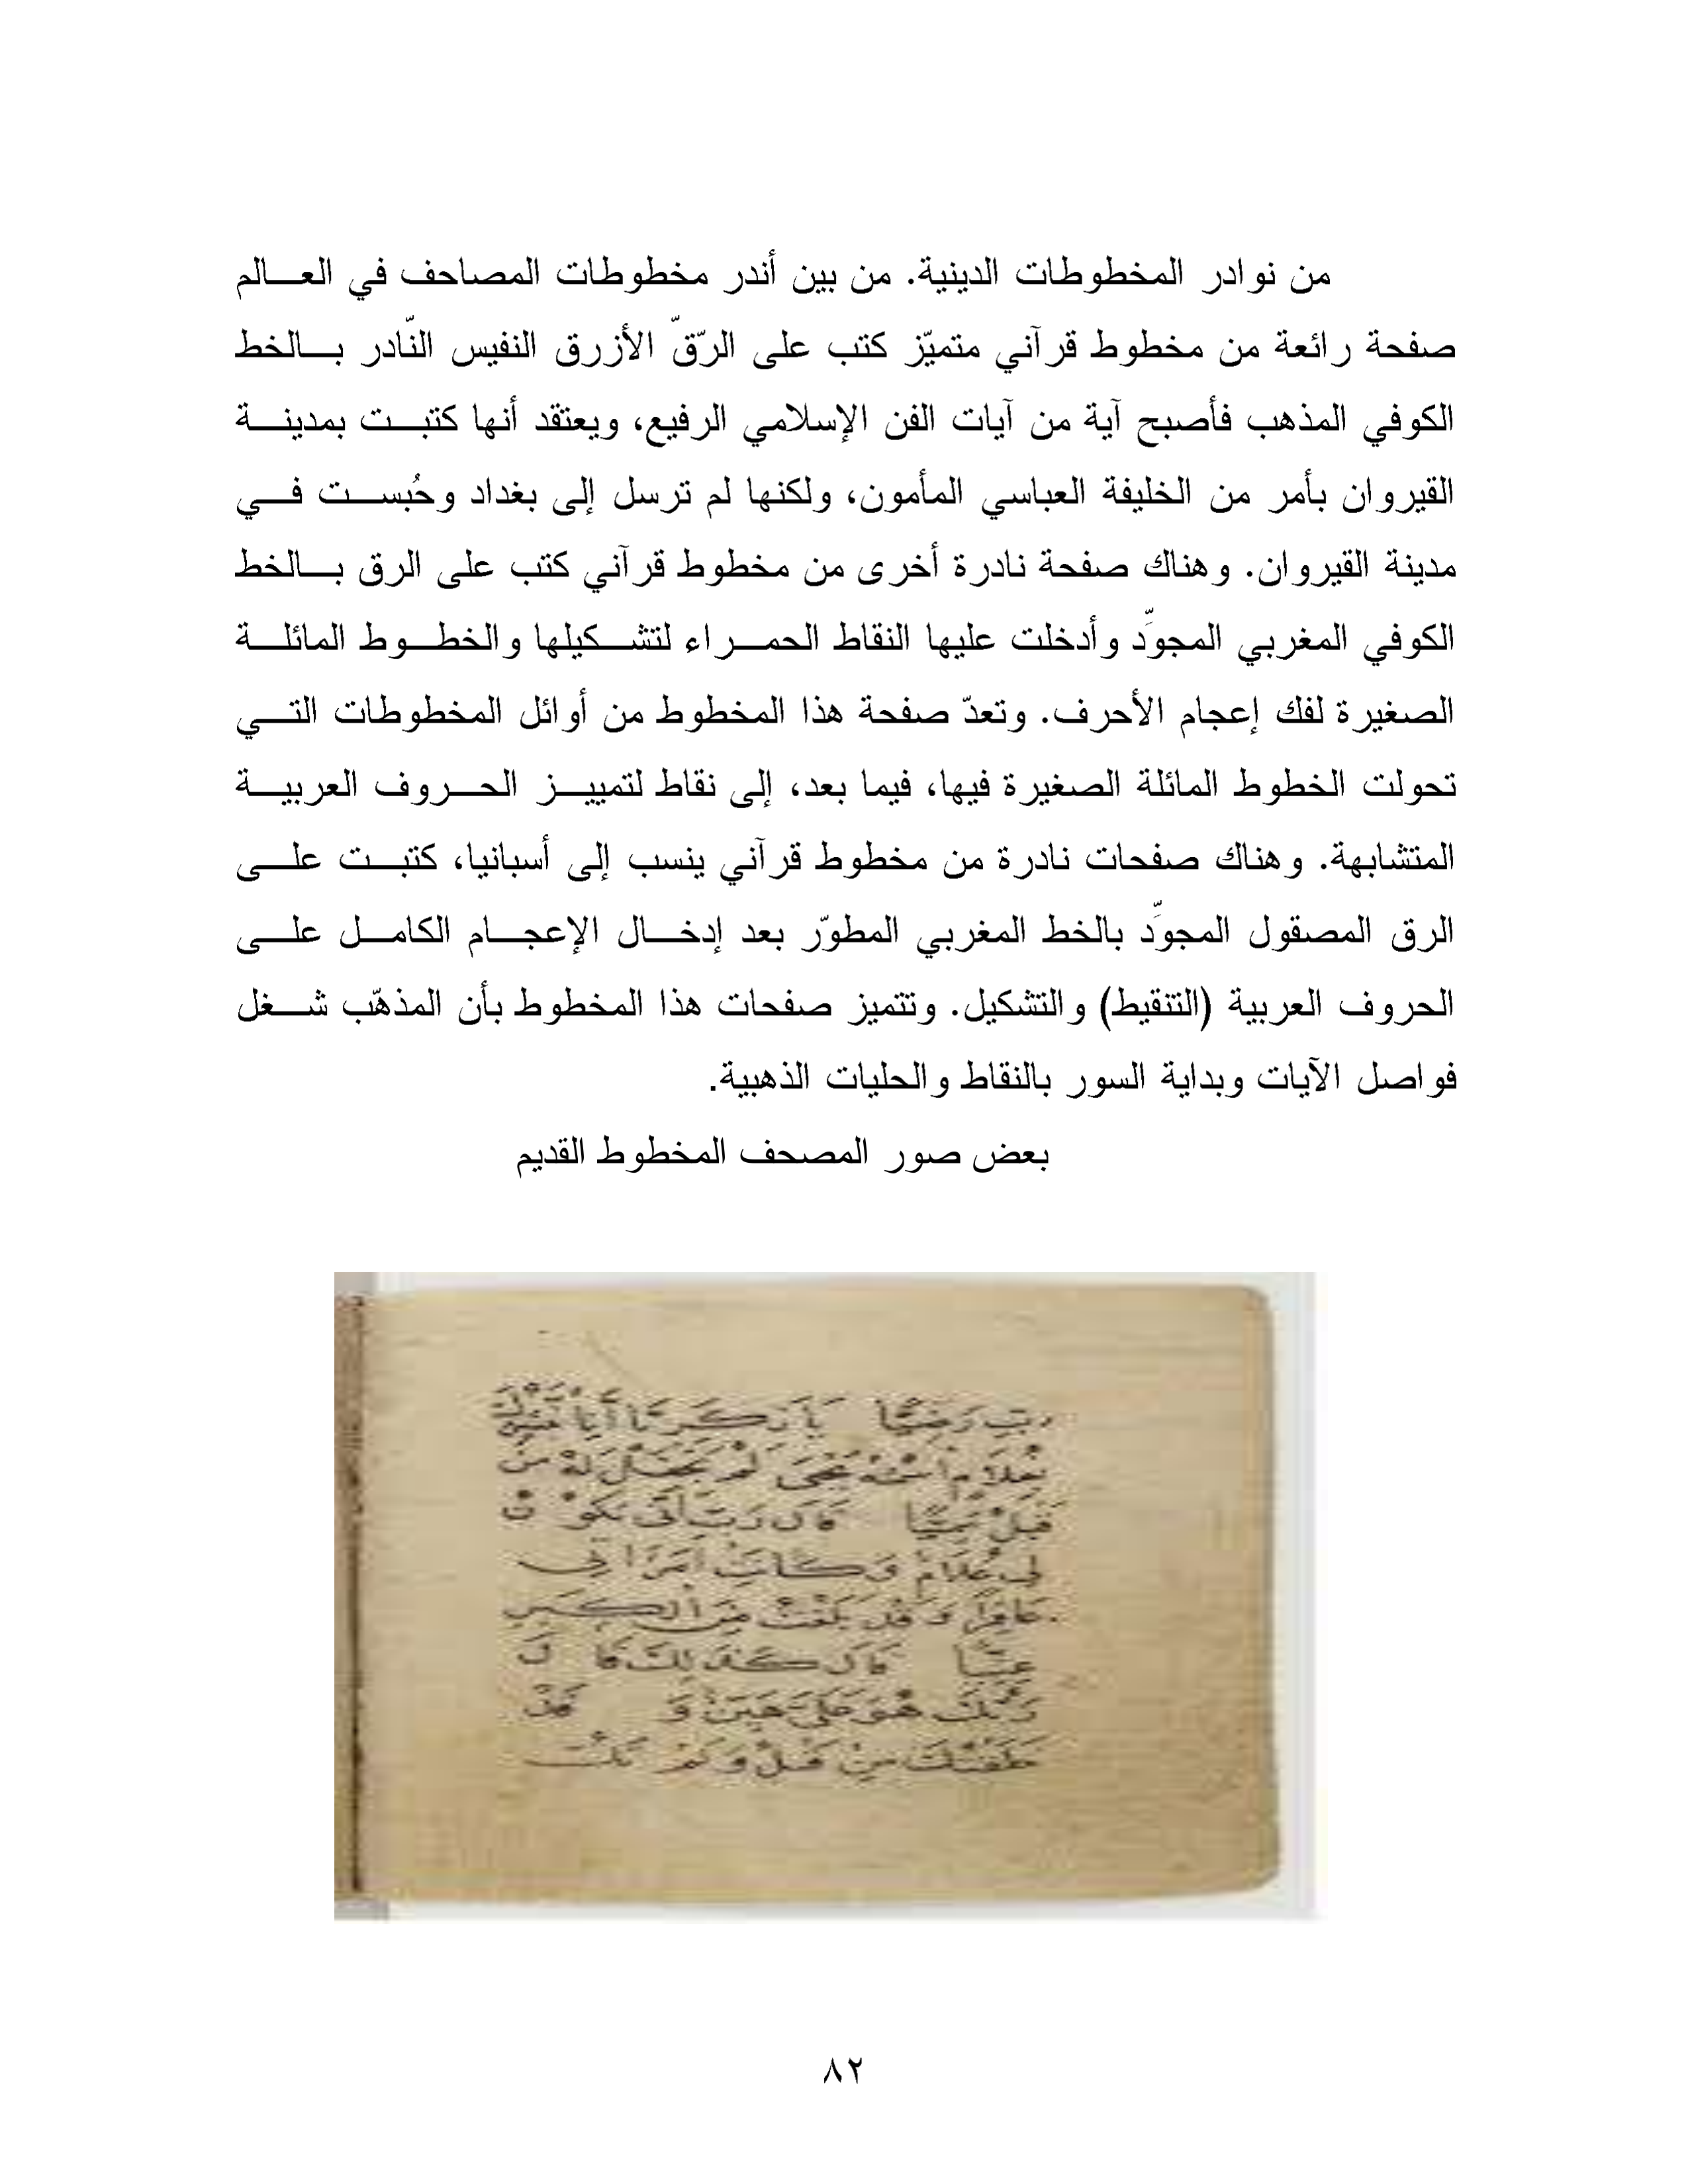 من نوادر المخطوطات الدينية. من بين أندر مخطوطات المصاحف في العـــالم
صفحة رائعة من مخطوط قرآني متميّز كتب على الرّقّ الأزرق النفيس النّادر بـــالخط
الكوفي المذهب فأصبح آية من آيات الفن الإسلامي الرفيع، ويعتقد أنها كتبـــت بمدينـــة
القيروان بأمر من الخليفة العباسي المأمون، ولكنها لم ترسل إلى بغداد وحُبســـت فـــي
مدينة القيروان. وهناك صفحة نادرة أخرى من مخطوط قرآني كتب على الرق بـــالخط
الكوفي المغربي المجوَّد وأدخلت عليها النقاط الحمـــراء لتشـــكيلها والخطـــوط المائلـــة
الصغيرة لفك إعجام الأحرف. وتعدّ صفحة هذا المخطوط من أوائل المخطوطات التـــي
تحولت الخطوط المائلة الصغيرة فيها، فيما بعد، إلى نقاط لتمييـــز الحـــروف العربيـــة
المتشابهة. وهناك صفحات نادرة من مخطوط قرآني ينسب إلى أسبانيا، كتبـــت علـــى
الرق المصقول المجوَّد بالخط المغربي المطوّر بعد إدخـــال الإعجـــام الكامـــل علـــى
الحروف العربية (التنقيط) والتشكيل. وتتميز صفحات هذا المخطوط بأن المذهّب شـــغل
فواصل الآيات وبداية السور بالنقاط والحليات الذهبية.
بعض صور المصحف المخطوط القديم
رَبِّ رَضِيًّا يَا زَكَرِيَّا إِنَّا
بِغُلَامٍ اسْمُهُ يَحْيَى لَمْ نَجْعَلْ لَهُ مِنْ
قَبْلُ سَمِيًّا قَالَ رَبِّ أَنَّى يَكُونُ
لِي غُلَامٌ وَكَانَتِ امْرَأَتِي
عَاقِرًا وَقَدْ بَلَغْتُ مِنَ الْكِبَرِ
عِتِيًّا قَالَ كَذَلِكَ قَالَ
رَبُّكَ هُوَ عَلَيَّ هَيِّنٌ وَقَدْ
خَلَقْتُكَ مِنْ قَبْلُ وَلَمْ تَكُ
٨٢